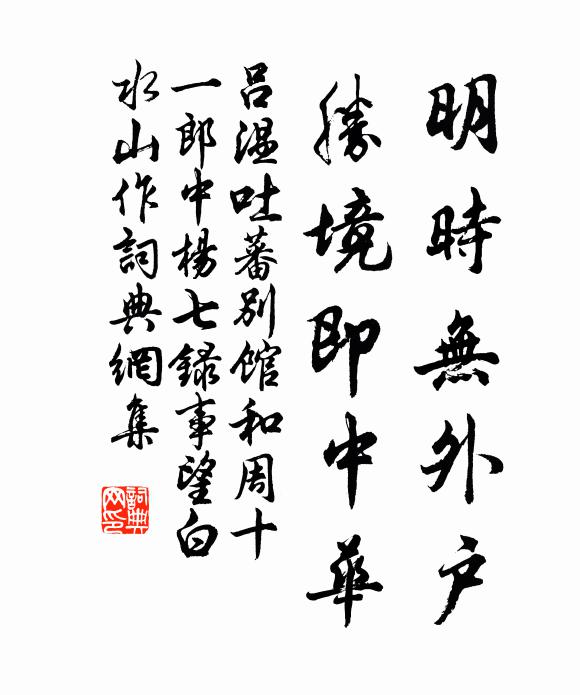 明時無外戶
勝境即中華
吕溫吐蕃別館和周十
一郎中楊七錄事望白
水山作詞典網集
詞典
网印